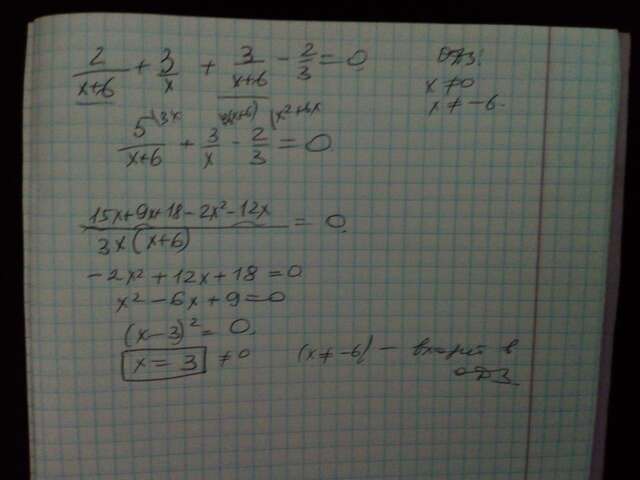 2/(x+6) + 3/x + 3/(x+6) - 2/3 = 0
ОДЗ:
x ≠ 0
x ≠ -6.
5\3x/(x+6) + 3\3(x+6)/x - 2\x²+6x/3 = 0
(15x+9x+18-2x²-12x)/(3x(x+6)) = 0
-2x²+12x+18=0
x²-6x+9=0
(x-3)²=0.
x=3 ≠0 (x≠-6) - входит в
ОДЗ